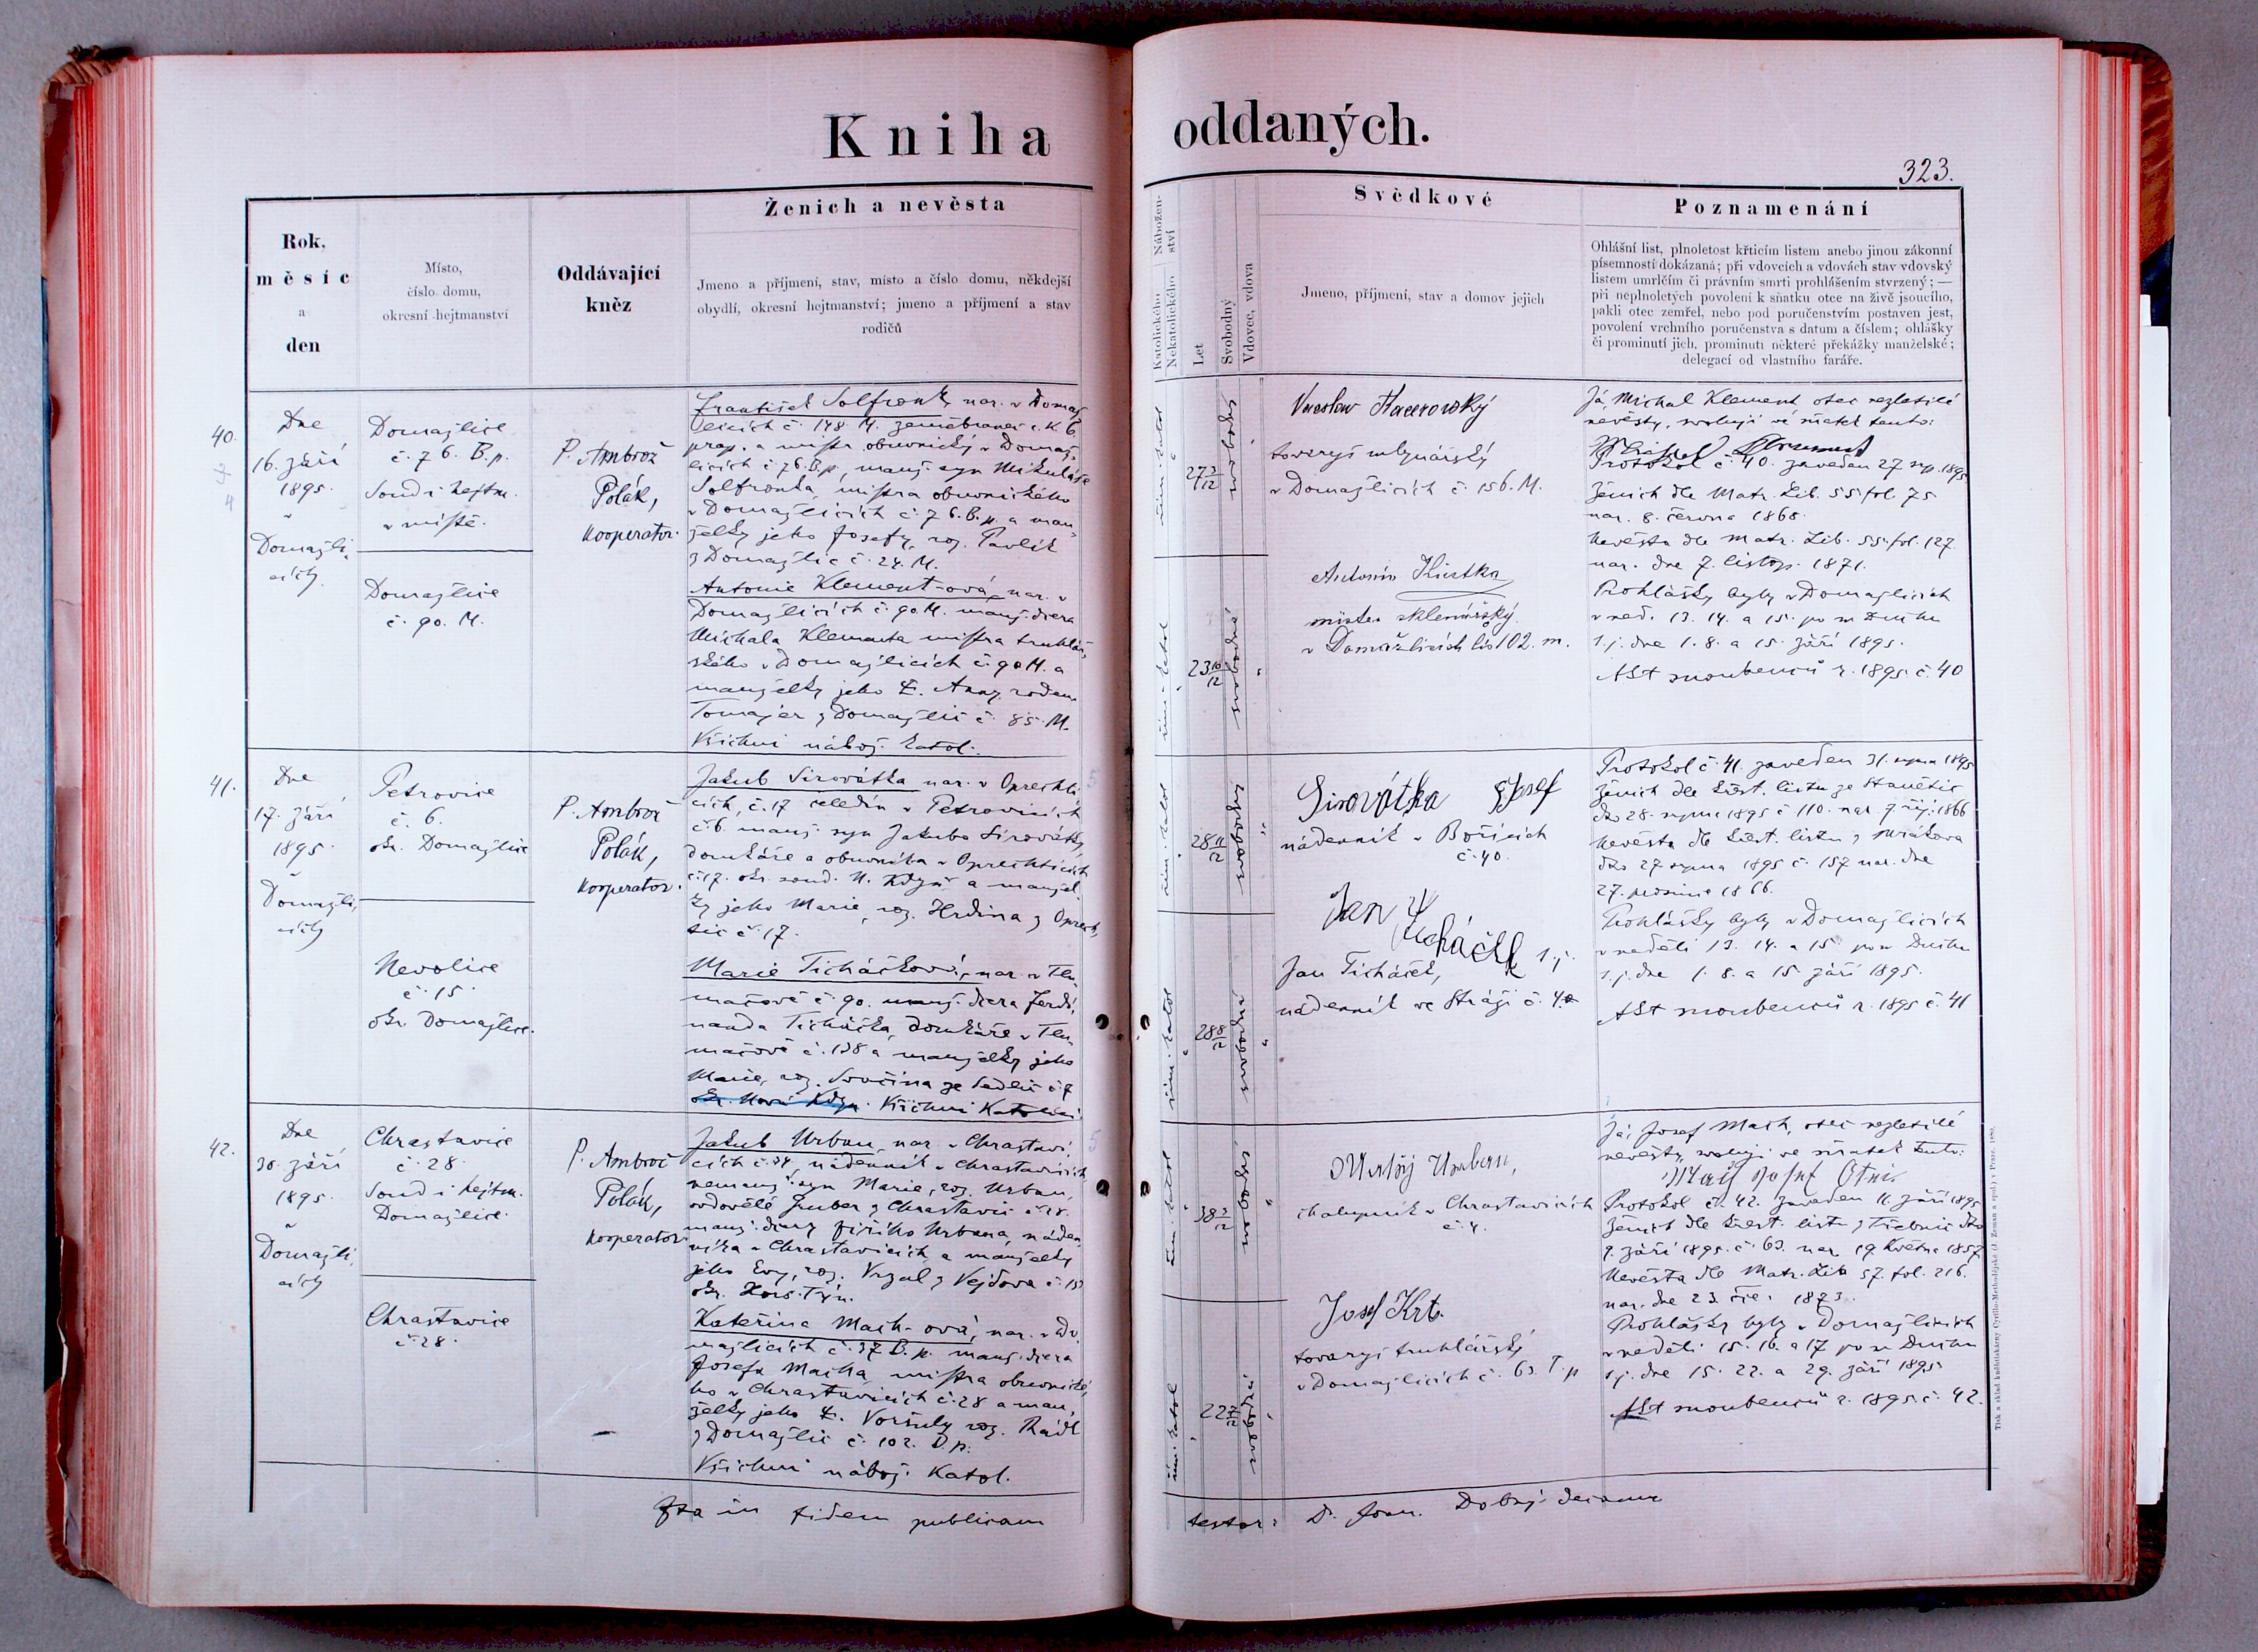 Kniha oddaných.
323.
Rok, měsíc a den
Místo, číslo domu, okresní hejtmanství
Oddávající kněz
Ženich a nevěsta
Jmeno a příjmení, stav, místo a číslo domu, někdejší
obydlí, okresní hejtmanství; jmeno a příjmení a stav
rodičů
Náboženství
Katolického
Nekatolického
Let
Svobodný
Vdovec, vdova
Svědkové
Jmeno, příjmení, stav a domov jejich
Poznamenání
Ohlášní list, plnoletost křticím listem anebo jinou zákonní
písemností dokázaná; při vdovcích a vdovách stav vdovský
listem umrlčím či právním smrti prohlášením stvrzený; —
při neplnoletých povolení k sňatku otce na živě jsoucího,
pakli otec zemřel, nebo pod poručenstvím postaven jest,
povolení vrchního poručenstva s datum a číslem; ohlášky
či prominutí jich, prominutí některé překážky manželské;
delegací od vlastního faráře.
40.
Dne
16. září
1895.
v
Domažli-
cích
Domažlice
č. 76. B.p.
Soud i hejtm.
v místě.
Domažlice
č. 90. M.
P. Ambrož
Polák,
kooperator.
František Solfronk, nar. v Domaž
licích č. 148 M. zeměbranec c. K. č.
prap. a mistr obuvnický v Domaž-
licích č 76. B.p., manž. syn Mikuláše
Solfronka, mistra obuvnického
v Domažlicích č. 76. B. p. a man-
želky jeho Josefy, roz. Pavlík
z Domažlic č. 24. M.
Antonie Klement-ová, nar. v
Domažlicích č. 90. M. manž. dcera
Michala Klementa mistra truhlář-
ského v Domažlicích č. 90 M. a
manželky jeho Anny, rozen.
Tomajer z Domažlic č. 85. M.
Všichni nábož. katol.
řím. katol.
27 3/12
svobodný
řím. katol.
23 10/12
svobodná
Hacerovský
tovaryš mlynářský
v Domažlicích č. 156. M.
Antonín
mister sklenářský
v Domažlicích čís 102. m.
Já, Michal Klement otec nezletilé
nevěsty, svoluji ve sňatek tento:
Protokol č. 40. zaveden 27. srp. 1895
Ženich dle Matr. Lib. 55 fol. 75
nar. 8. června 1868.
Nevěsta dle Matr. Lib. 55. fol. 127.
nar. dne 7. listop. 1871.
Prohlášky byly v Domažlicích
v ned. 13. 14. a 15. po sv. Duchu
t. j. dne 1. 8. a 15. září 1895.
Akt snoubenců r. 1895. č. 40
41.
Dne
17. září
1895.
v
Domažli-
cích
Petrovice
č. 6.
okr. Domažlice
Nevolice
č. 15.
okr. Domažlice.
P. Ambrož
Polák,
kooperator.
Jakub Sirovátka nar. v Oprechti-
cích, č. 17 čeledín v Petrovicích
č. 6. manž. syn Jakuba Sirovátky,
domkáře a obuvníka v Oprechticích
č. 17. okr. soud. N. Kdyně a manžel-
ky jeho Marie, roz. Hrdina z Oprech-
tic č. 17.
Marie Ticháčková, nar. v Tlu-
mačově č. 90. manž. dcera Ferdi-
nanda Ticháčka, domkáře v Tlu-
mačově č. 138 a manželky jeho
Marie, roz. Svačina ze Sedlic č. 7
okr. Nová Kdyn. Všichni Katolíci.
řím. katol.
28 11/12
svobodný
řím. katol
28 8/12
svobodná
Sirovátka Josef
nádenník v Bořicích
č. 40.
Jan Ticháček
Jan Ticháček,
nádenník ve Stráži č. 40
Protokol č. 41. zaveden 31. srpna 1895
Ženich dle křest. listu ze Stanětic
dto 28. srpna 1895 č. 110. nar. 7. říj. 1866
Nevěsta dle křest. listu z Mrákova
dto 27. srpna 1895 č. 157 nar. dne
27. prosince 1866.
Prohlášky byly v Domažlicích
v neděli 13. 14. a 15. po sv Duchu
t. j. dne 1. 8. a 15. září 1895.
Akt snoubenců r. 1895 č. 41
42.
Dne
30. září
1895.
v
Domažli-
cích
Chrastavice
č. 28.
Soud i hejtm.
Domažlice.
Chrastavice
č. 28.
P. Ambrož
Polák,
kooperator.
Jakub Urban, nar. v Chrastavi-
cích č. 24, nádenník v Chrastavicích
nemanž. syn Marie, roz. Urban,
ovdovělé Gruber z Chrastavic č. 28.
manž. dcery Jiřího Urbana, náden-
níka v Chrastavicích a manželky
jeho Evy, roz. Vrzal z Vejdova
okr. Hors. Týn.
Kateřina Mach-ová, nar. v Do-
mažlicích č. 37 D. p. manž. dcera
Josefa Macha, mistra obuvnické-
ho v Chrastavicích č. 28 a man-
želky jeho Voršily roz. Rádl
z Domažlic č. 102. D. p.
Všichni nábož. Katol.
řím. katol
38 3/12
svobodný
řím. katol
22 7/12
svobodná
Matěj Urban,
chalupník v Chrastavicích
č. 4.
Josef Krt.
tovaryš truhlářský
v Domažlicích č. 63. T. p
Já, Josef Mach, otec nezletilé
nevěsty, svoluji ve sňatek tento:
Mach Josef Otec
Protokol č. 42. zaveden 11. září 1895
Ženich dle křest. listu z Třebnic dto
9. září 1895. č. 63. nar. 19. května 1857.
Nevěsta dle Matr. Lib 57. fol. 216.
nar. dne 23. 1873.
Prohlášky byly v Domažlicích
v neděli 15. 16. a 17 po sv Duchu
t. j. dne 15. 22. a 29. září 1895
Akt snoubenců r. 1895. č. 42.
Ita in fidem publicam
testor: D. Joan. Dobrý